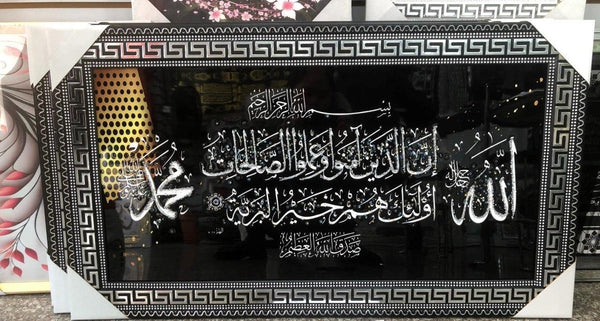 بسم الله الرحمن الرحيم
الله جل جلاله
إن الذين آمنوا وعملوا الصالحات
أولئك هم خير البرية
محمد
صدق الله العظيم